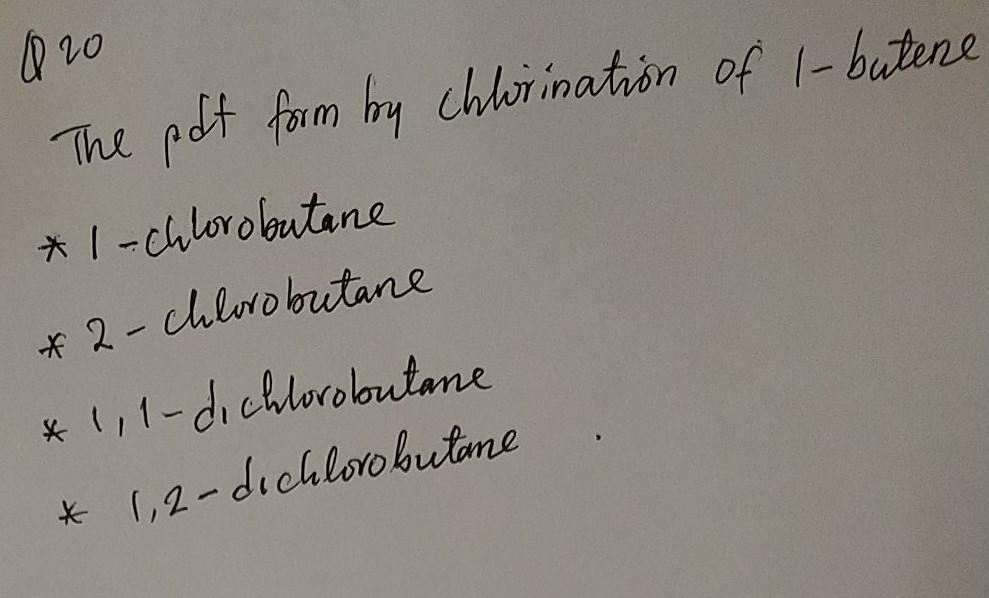 Q 20
The pdt form by chlorination of 1-butene
* 1-chlorobutane
* 2-chlorobutane
* 1,1-dichlorobutane
* 1,2-dichlorobutane